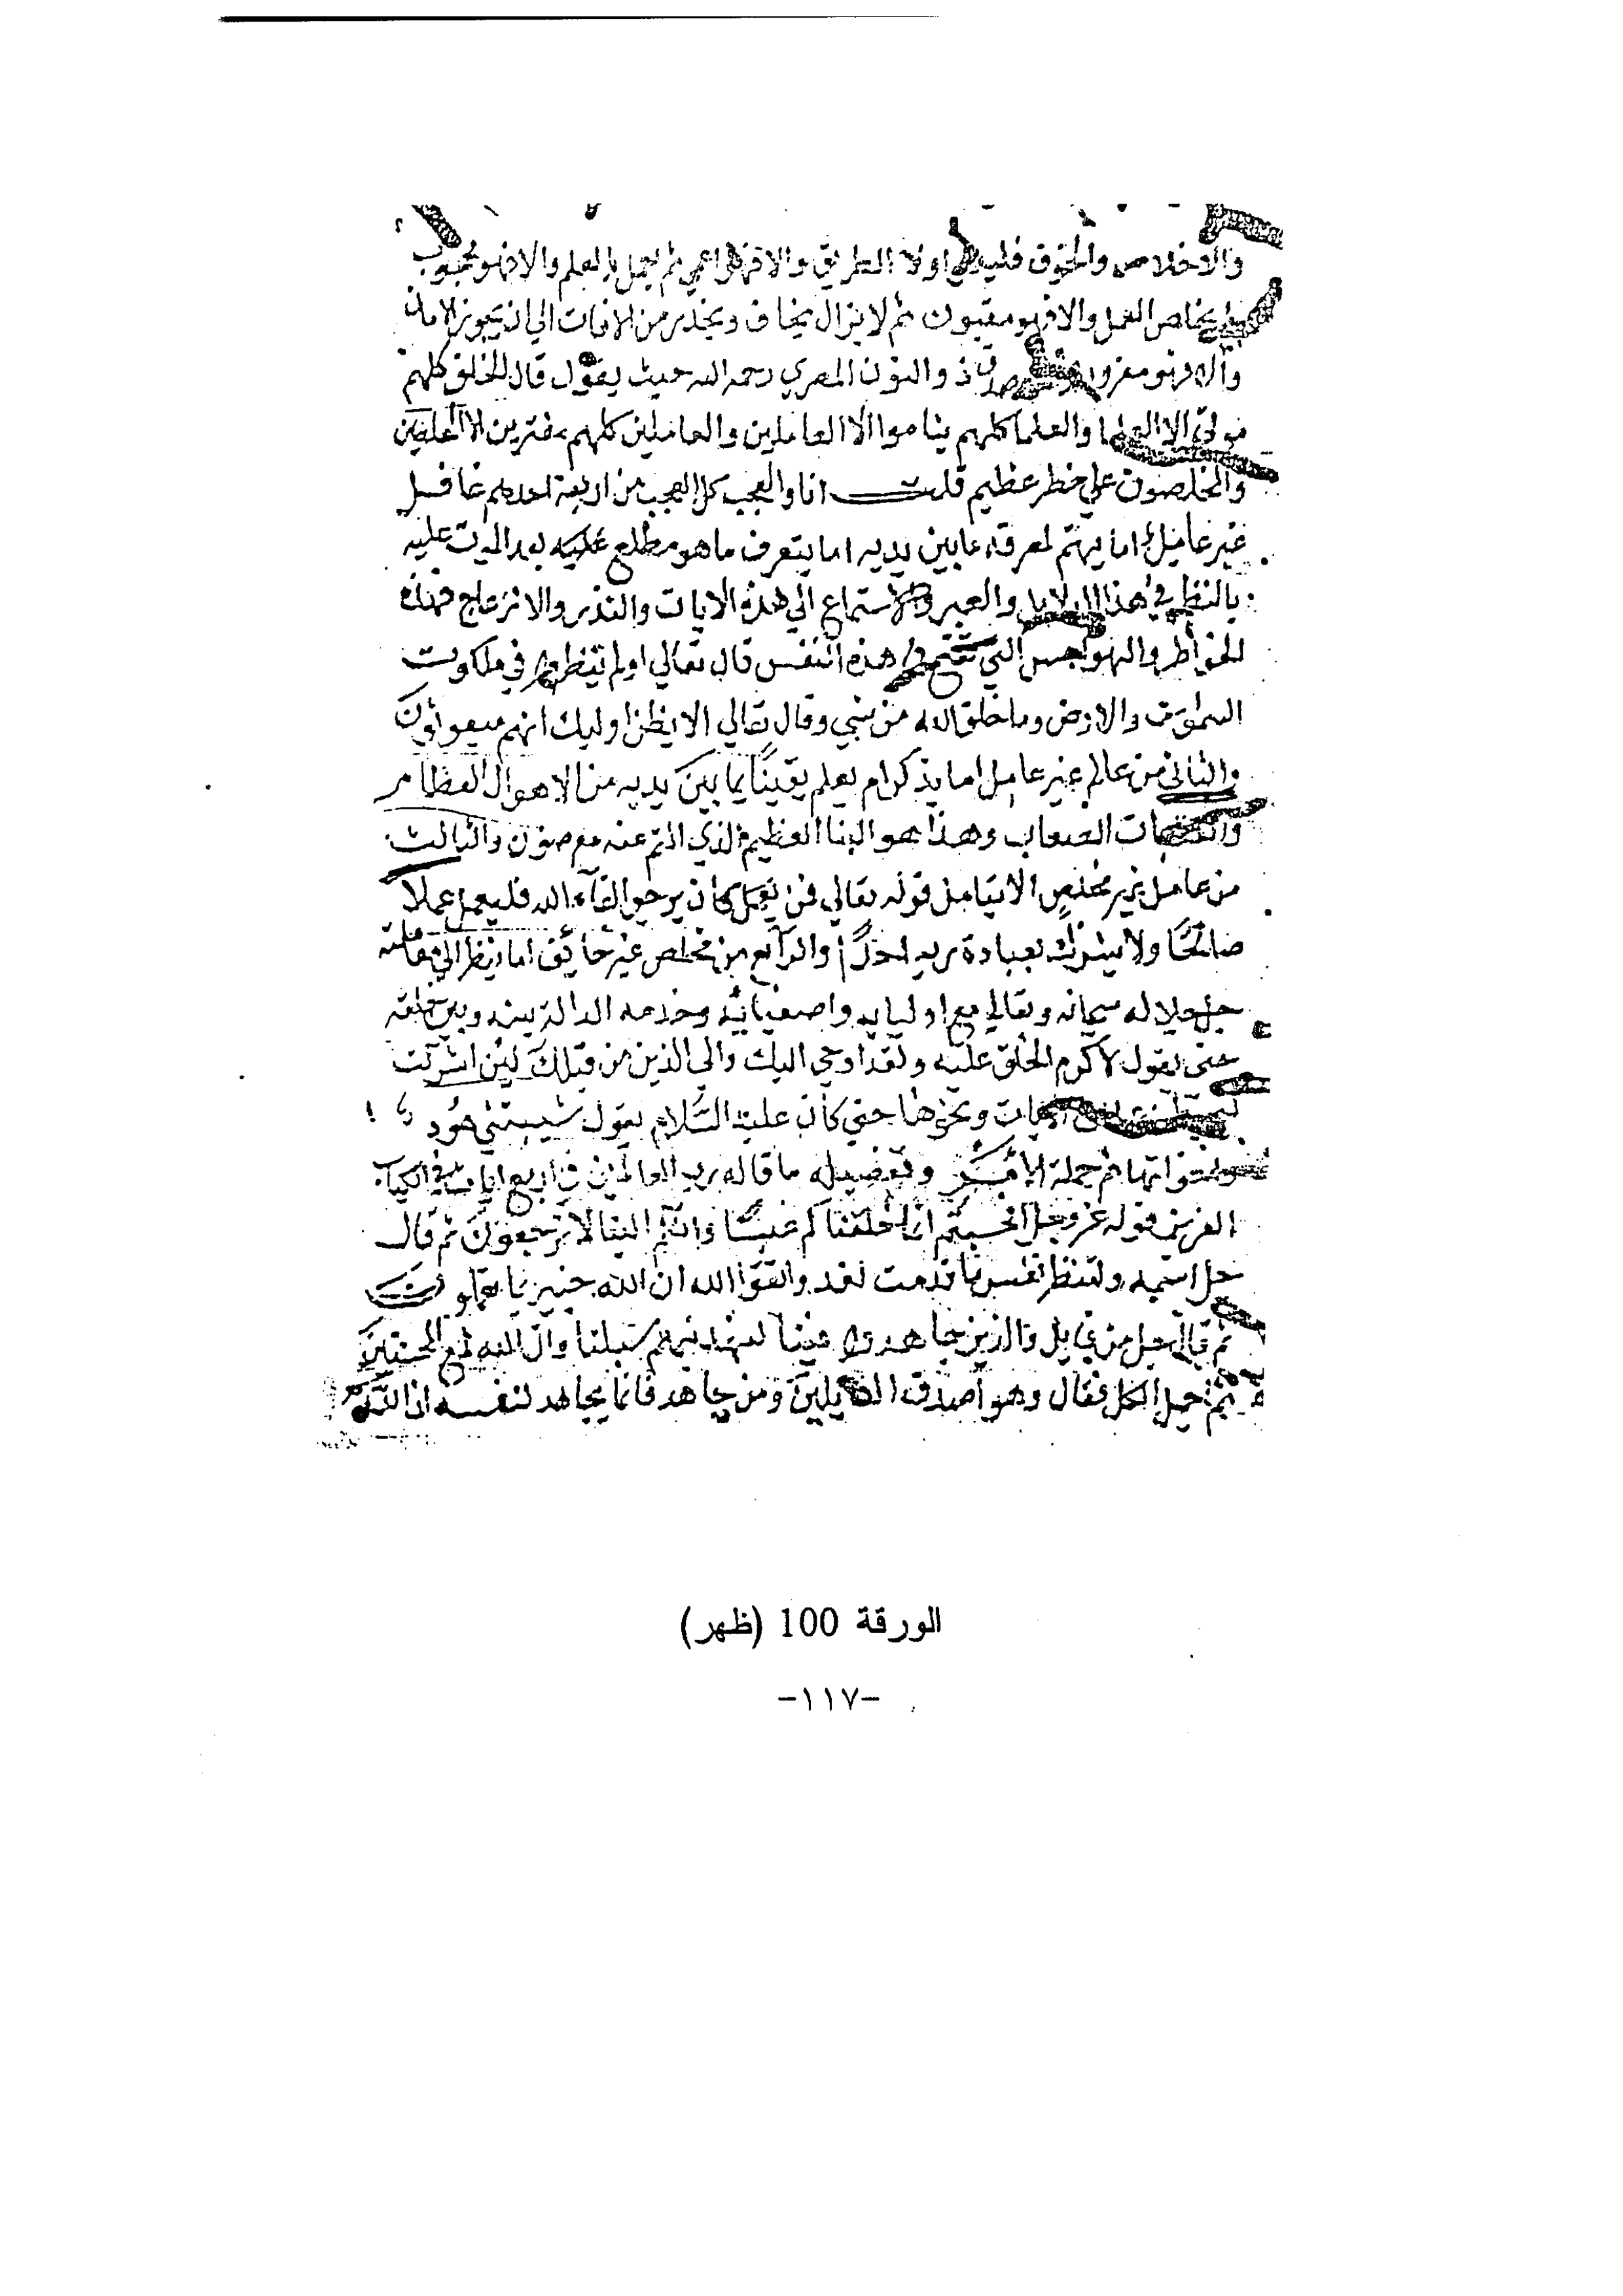 والاخلاص والخوف فليعلم اولا الطريق والا فهو اعمي ثم يعمل بالعلم والا فهو محجوب
ثم يخلص العمل والا فهو مغبون ثم لا يزال يخاف ويحذر من الافات الي ان يجوز الامان
والا فهو مغرور وصدق ذو النون المصري رحمه الله حيث يقول قال الخلق كلهم
موتي الا العلما والعلما كلهم نياموا الا العاملين والعاملين كلهم مغترين الا المخلصين
والمخلصون علي خطر عظيم قلت انا والعجب كل العجب من اربعة احدهم عاقل
غير عامل اما يهتم لمعرفة ما بين يديه اما يتعرف ما هو مطلع عليه بعد الموت عليه
بالنظر في هذا والعبر والاستماع الي هذه الايات والنذر والانزعاج بهذه
الخواطر والهواجس التي هذه النفس قال تعالي اولم ينظروا في ملكوت
السموت والارض وما خلق الله من شي وقال تعالي الا يظن اوليك انهم مبعوثون
والثاني من عالم غير عامل اما يذكرام يعلم يقينا بما بين يديه من الاهوال العظام
والعقبات الصعاب وهذا هو النبا العظيم الذي انتم عنه معرضون والثالث
من عامل غير مخلص الا يتامل قوله تعالي فمن يعمل كان يرجوا لقآء الله فليعمل عملا
صالحا ولا يشرك بعبادة ربه احدًا والرابع من مخلص غير خايف اما ينظر الي معاملته
جل جلاله سبحانه وتعالي مع اوليايه واصفيايه وخدمه الدالة بينه وبين خلقه
حتي يقول لاكرم الخلق عليه ولقد اوحي اليك والي الذين من قبلك لئن اشركت
ليحبطن ونحوها حتي كان عليه السلام يقول شيبتني هود
واخواتها ثم جملة الامر وتفصيله ما قاله رب العالمين في اربع ايات في الكتاب
العزيز قوله عز وجل افحسبتم انما خلقناكم عبثا وانكم الينا لا ترجعون ثم قال
جل اسمه ولتنظر نفس ما قدمت لغد واتقوا الله ان الله خبير بما تعملون
ثم قال جل من قايل والذين جاهدوا فينا لنهدينهم سبلنا وان الله لمع المحسنين
ثم اجمل الكل فقال وهو اصدق القايلين ومن جاهد فانما يجاهد لنفسه ان الله
الورقة 100 (ظهر)
-١١٧-